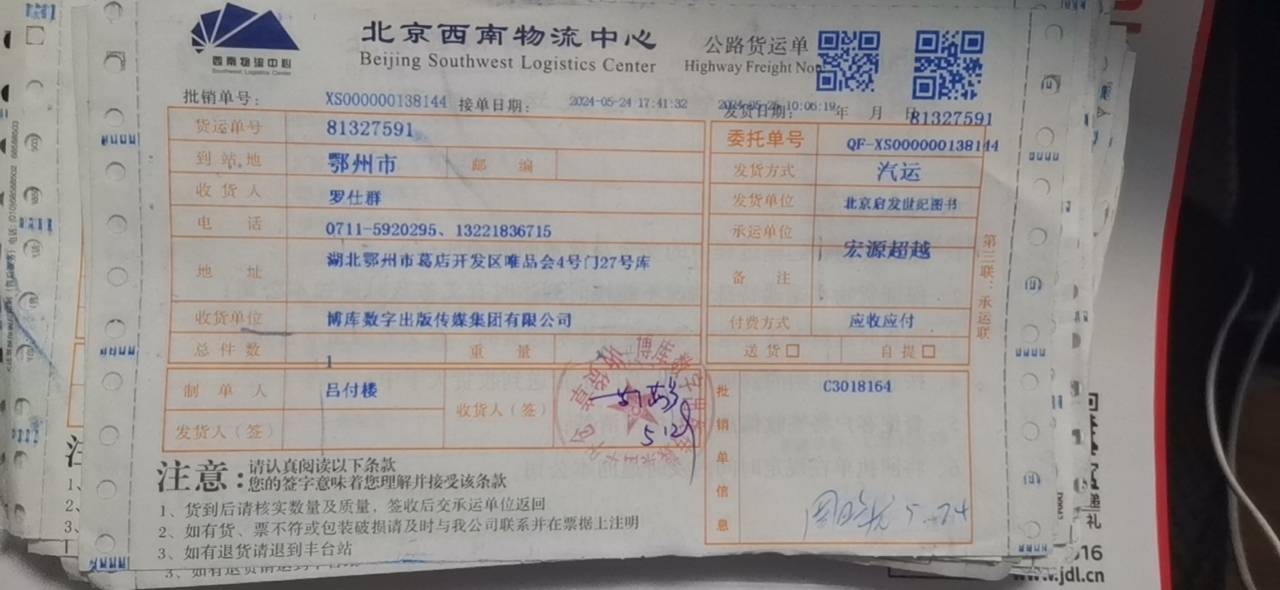 西南物流中心
Southwest Logistics Center
北京西南物流中心
Beijing Southwest Logistics Center
公路货运单
Highway Freight Note
批销单号: XS000000138144 接单日期: 2024-05-24 17:41:32 发货日期: 年 月 日
81327591
货运单号 81327591 委托单号 QF-XS000000138144
到站地 鄂州市 邮编 发货方式 汽运
收货人 罗仕群 发货单位 北京启发世纪图书
电话 0711-5920295、13221836715 承运单位 宏源超越
地址 湖北鄂州市葛店开发区唯品会4号门27号库 备注
收货单位 博库数字出版传媒集团有限公司 付费方式 应收应付
总件数 1 重量 送货□ 自提□
制单人 吕付楼 收货人(签) 批销单信息 C3018164
发货人(签)
5.29
5.24
第三联:承运联
注意:
请认真阅读以下条款
您的签字意味着您理解并接受该条款
1、货到后请核实数量及质量,签收后交承运单位返回
2、如有货、票不符或包装破损请及时与我公司联系并在票据上注明
3、如有退货请退到丰台站
www.jdl.cn